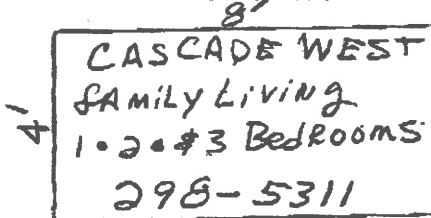 8'
4'
CASCADE WEST
fAMiLY LiViNg
1•2•&3 BedROOMS
298-5311